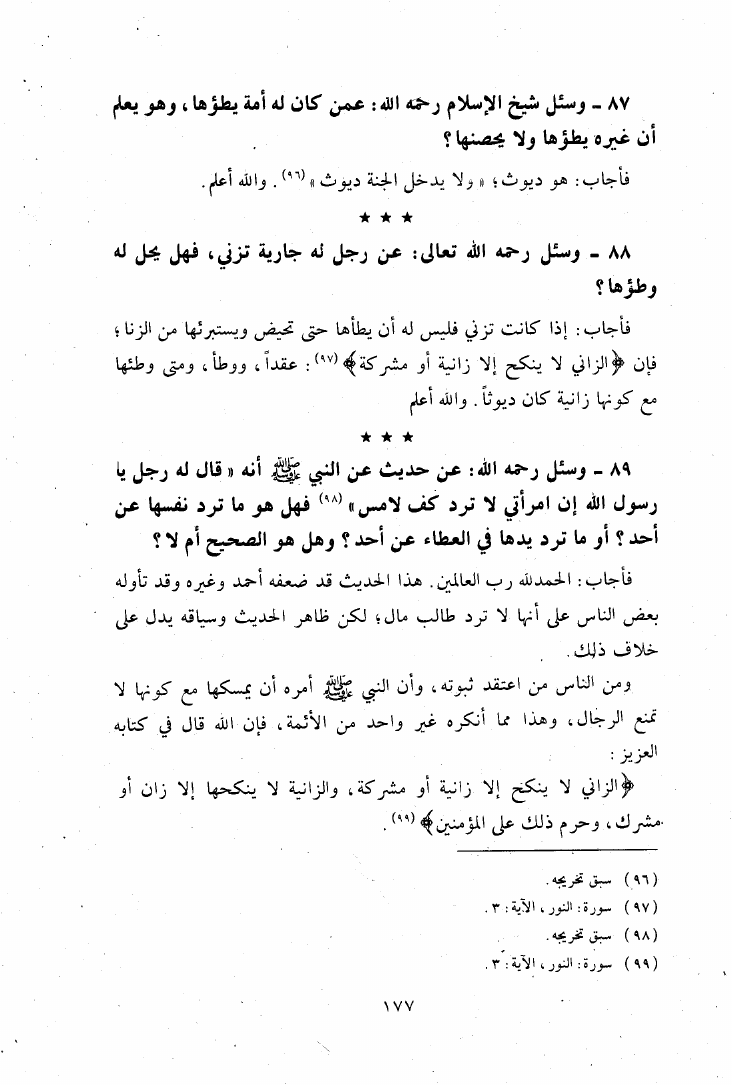 ٨٧ ـ وسئل شيخ الإسلام رحمه الله: عمن كان له أمة يطؤها، وهو يعلم
أن غيره يطؤها ولا يحصنها؟
فأجاب: هو ديوث؛ «ولا يدخل الجنة ديوث»(٩٦). والله أعلم.
★ ★ ★
٨٨ ـ وسئل رحمه الله تعالى: عن رجل له جارية تزني، فهل يحل له
وطؤها؟
فأجاب: إذا كانت تزني فليس له أن يطأها حتى تحيض ويستبرئها من الزنا؛
فإن ﴿الزاني لا ينكح إلا زانية أو مشركة﴾(٩٧): عقداً، ووطأ، ومتى وطئها
مع كونها زانية كان ديوثاً. والله أعلم
★ ★ ★
٨٩ ـ وسئل رحمه الله: عن حديث عن النبي ﷺ أنه «قال له رجل يا
رسول الله إن امرأتي لا ترد كف لامس»(٩٨) فهل هو ما ترد نفسها عن
أحد؟ أو ما ترد يدها في العطاء عن أحد؟ وهل هو الصحيح أم لا؟
فأجاب: الحمدلله رب العالمين. هذا الحديث قد ضعفه أحمد وغيره وقد تأوله
بعض الناس على أنها لا ترد طالب مال؛ لكن ظاهر الحديث وسياقه يدل على
خلاف ذلك.
ومن الناس من اعتقد ثبوته، وأن النبي ﷺ أمره أن يمسكها مع كونها لا
تمنع الرجال، وهذا مما أنكره غير واحد من الأئمة، فإن الله قال في كتابه
العزيز:
﴿الزاني لا ينكح إلا زانية أو مشركة، والزانية لا ينكحها إلا زان أو
مشرك، وحرم ذلك على المؤمنين﴾(٩٩).
(٩٦) سبق تخريجه.
(٩٧) سورة: النور، الآية: ٣.
(٩٨) سبق تخريجه.
(٩٩) سورة: النور، الآية: ٣.
١٧٧